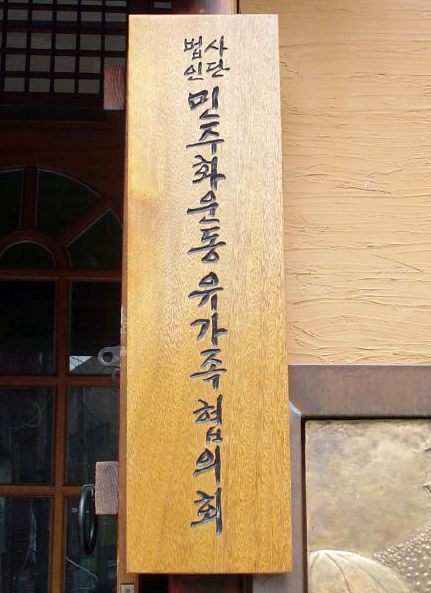 사단
법인
민주화운동 유가족 협의회